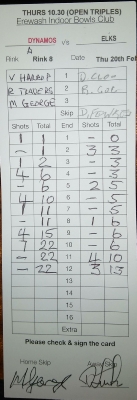 THURS 10.30 (OPEN TRIPLES)
Erewash Indoor Bowls Club
DYNAMOS v's ELKS
A
Rink Rink 8 Date Thu 20th Feb
V HARROP 1
R TRADERS 2
M GEORGE 3
Skip
Shots Total Ends Shots Total
1 1 1 - 0
- 1 2 3 3
1 2 3 - 3
4 6 4 - 3
- 6 5 2 5
4 10 6 - 5
1 11 7 - 5
- 11 8 1 6
4 15 9 - 6
7 22 10 - 6
- 22 11 4 10
- 22 12 3 13
13
14
15
16
Extra
Please check & sign the card
Home Skip Away Skip